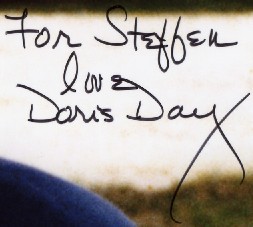 For Steffen
Love
Doris Day